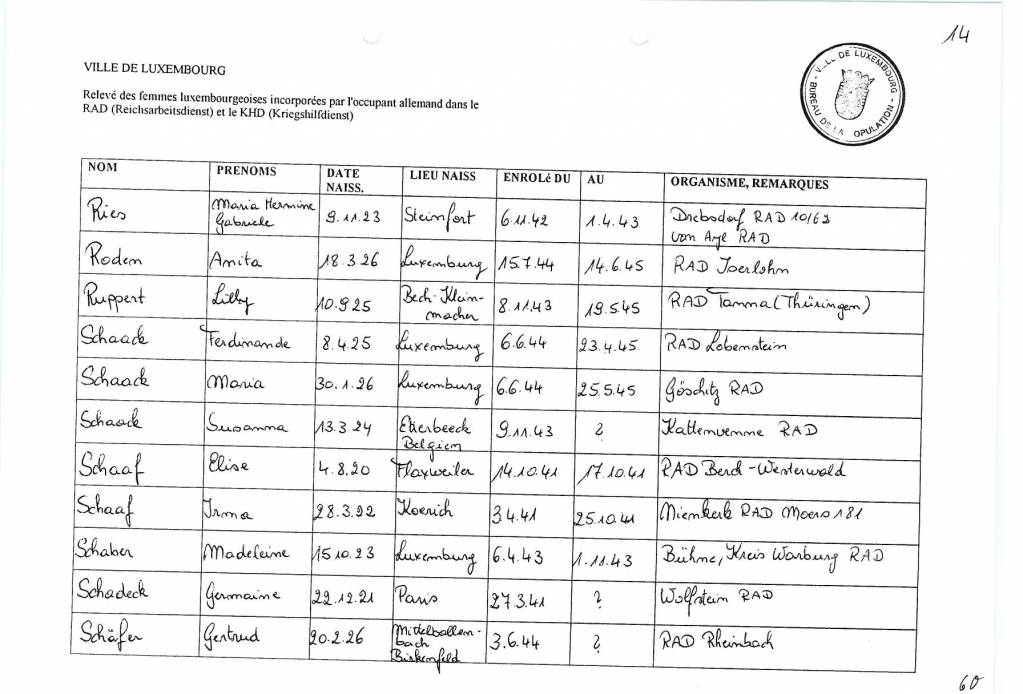 14
VILLE DE LUXEMBOURG
Relevé des femmes luxembourgeoises incorporées par l'occupant allemand dans le
RAD (Reichsarbeitsdienst) et le KHD (Kriegshilfdienst)
VILLE DE LUXEMBOURG - BUREAU DE LA OPULATION -
NOM PRENOMS DATE NAISS. LIEU NAISS ENROLé DU AU ORGANISME, REMARQUES
Ries Maria Hermine Gabriele 9.11.23 Steinfort 6.11.42 1.4.43 Drebsdorf RAD 10/62 von RAD
Roden Anita 18.3.26 Luxemburg 15.7.44 14.6.45 RAD Iserlohn
Ruppert Lilly 10.9.25 Bech-Kleinmacher 8.11.43 19.5.45 RAD Tanna (Thüringen)
Schaack Ferdinande 8.4.25 Luxemburg 6.6.44 23.4.45 RAD Lobenstein
Schaack Maria 30.1.26 Luxemburg 6.6.44 25.5.45 Göschitz RAD
Schaack Susanna 13.3.24 Etterbeeck Belgien 9.11.43 ? Kattenvenne RAD
Schaaf Elise 4.8.20 Flaxweiler 14.10.41 17.10.41 RAD Berd-Westerwald
Schaaf Irma 28.3.22 Koerich 3.4.41 25.10.41 Nienkerk RAD Moers 181
Schaber Madeleine 15.10.23 Luxemburg 6.4.43 1.11.43 Bühne, Kreis Warburg RAD
Schadeck Germaine 22.12.21 Paris 27.3.41 ? Wolfstein RAD
Schäfer Gertrud 20.2.26 Mittelbollenbach Birkenfeld 3.6.44 ? RAD Rheinbach
60